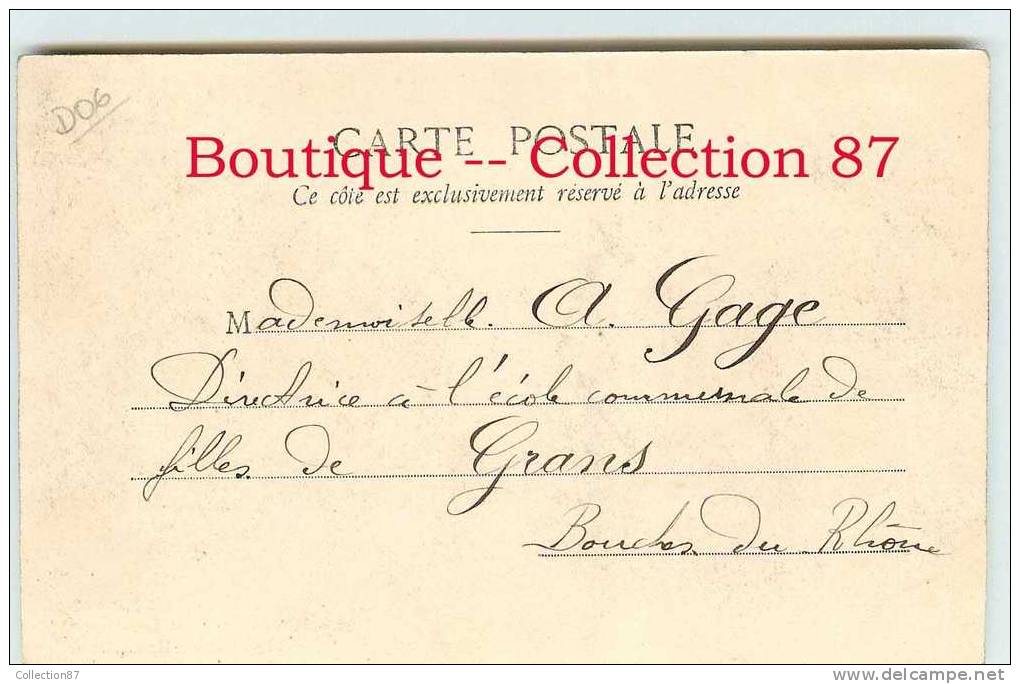 D06
CARTE POSTALE
Boutique -- Collection 87
Ce côté est exclusivement réservé à l'adresse
Mademoiselle. A. Gage
Directrice à l'école communale de
filles de Grans
Bouches du Rhône
Collection87
www.delcampe.net